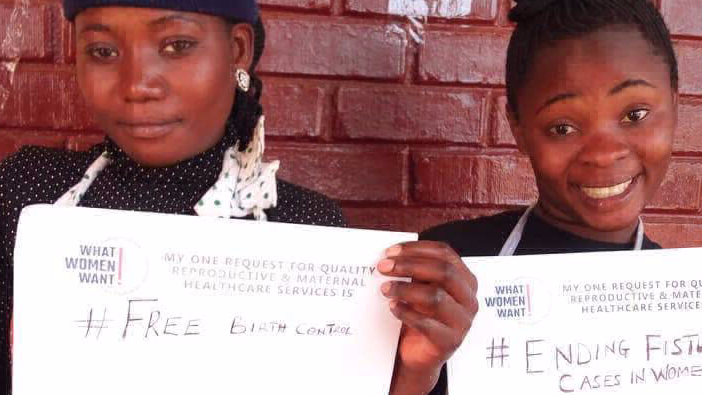 WHAT
WOMEN
WANT!
MY ONE REQUEST FOR QUALITY
REPRODUCTIVE & MATERNAL
HEALTHCARE SERVICES IS
# FREE BIRTH CONTROL
WHAT
WOMEN
WANT!
MY ONE REQUEST FOR QUA
REPRODUCTIVE & MATE
HEALTHCARE SERVICES
# ENDING FISTU
CASES IN WOME